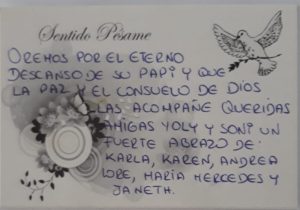 Sentido Pésame
OREMOS POR EL ETERNO
DESCANSO DE SU PAPI Y QUE
LA PAZ Y EL CONSUELO DE DIOS
LAS ACOMPAÑE QUERIDAS
AMIGAS YOLY Y SONI UN
FUERTE ABRAZO DE:
KARLA, KAREN, ANDREA
LORE, MARÍA MERCEDES Y
JANETH.